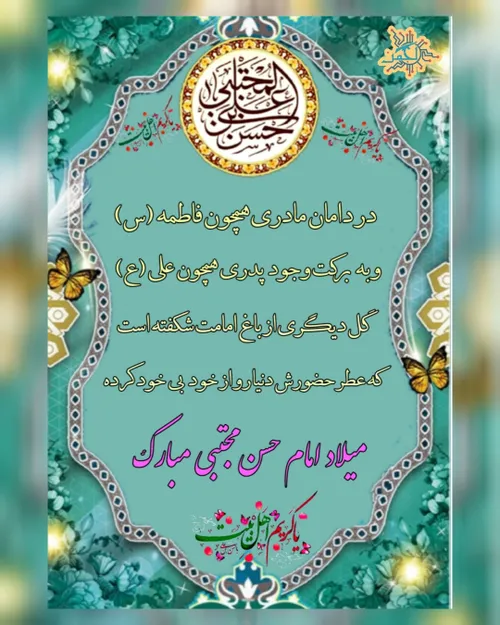 حسن بن علی المجتبی
یا کریم اهل بیت
یا کریم اهل بیت
در دامان مادری همچون فاطمه (س)
و به برکت وجود پدری همچون علی (ع)
گل دیگری از باغ امامت شکفته است
که عطر حضورش دنیا رو از خود بی خود کرده
میلاد امام حسن مجتبی مبارک
یا کریم اهل بیت